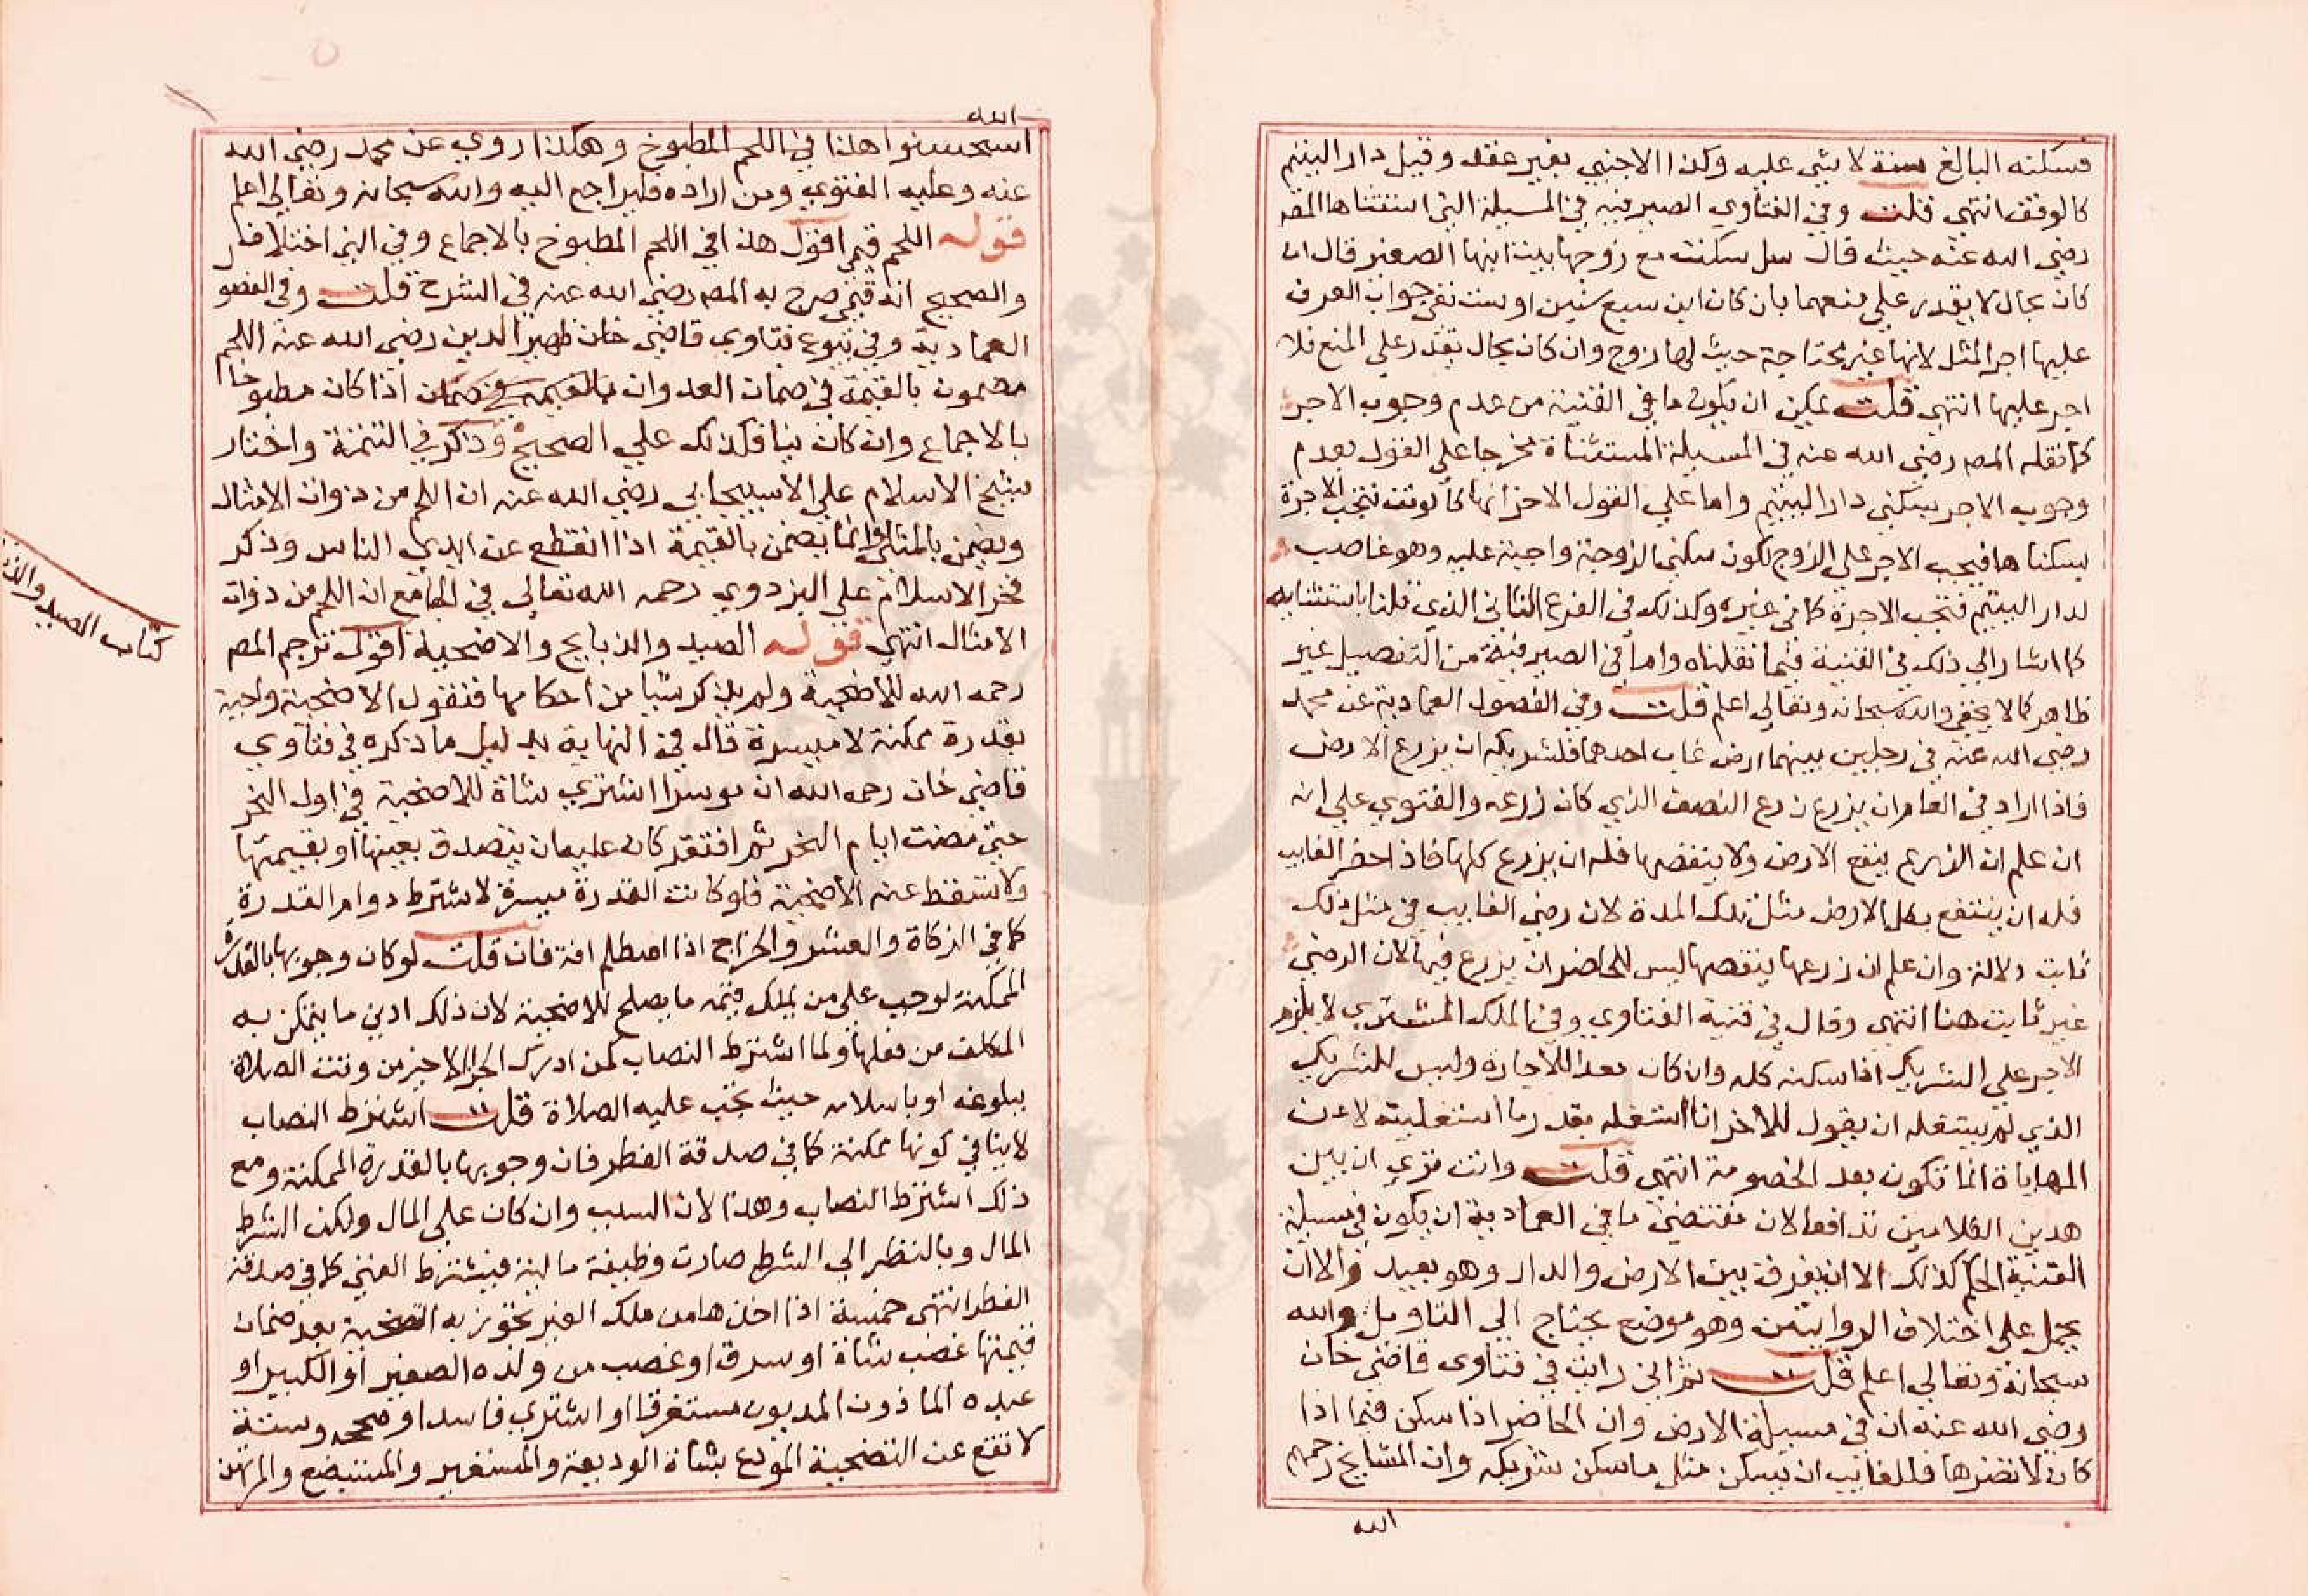 فسكنه البالغ سنة لا شي عليه وكذا الاجنبي بغير عقد وقيل دار اليتيم
كالوقف انتهى قلت وفي الفتاوي الصيرفية في المسيلة التي استثناها المصه
رضي الله عنه حيث قال سل سكنت مع زوجها بيت ابنها الصغير قال ان
كان بحال لا يقدر على منعهما بان كان ابن سبع سنين او ست نفي جواب العرف
عليها اجر المثل لانها غير محتاجة حيث لها زوج وان كان بحال يقدر على المنع فلا
اجر عليها انتهى قلت يمكن ان يكون ما في القنية من عدم وجوب الاجر
كما نقله المصه رضي الله عنه في المسيلة المستثناة مخرجا على القول بعدم
وجوب الاجر بسكني دار اليتيم واما على القول الاخر انها كالوقف فتجب الاجرة
بسكناها فيجب الاجر على الزوج لكون سكني الزوجة واجبة عليه وهو غاصب
لدار اليتيم فتجب الاجرة كما في غيره وكذلك في الفرع الثاني الذي قلنا باستثنايه
كما اشار الى ذلك في القنية فيما نقلناه واما في الصيرفية من التفصيل غير
ظاهر كما لا يخفى والله سبحانه وتعالى اعلم قلت وفي الفصول العمادية عن محمد
رضي الله عنه في رجلين بينهما ارض غاب احدهما فلشريكه ان يزرع الارض
فاذا اراد في العام ان يزرع زرع النصف الذي كان زرعه والفتوي على انه
ان علم ان الزرع ينفع الارض ولا ينقصها فله ان يزرع كلها فاذا حضر الغايب
فله ان ينتفع بكل الارض مثل تلك المدة لان رضي الغايب في مثل ذلك
ثابت دلالة وان علم ان زرعها ينقصها ليس للحاضر ان يزرع فيها لان الرضي
غير ثابت هنا انتهى وقال في قنية الفتاوي وفي الملك المشتري لا يلزم
الاجر على الشريك اذا سكنه كله وان كان معدا للاجارة وليس للشريك
الذي لم يستغله ان يقول للاخر انا استغله بقدر ما استغليته لان
المهاياة انما تكون بعد الخصومة انتهى قلت وانت تري ان بين
هدين الكلامين تدافعا لان مقتضي ما في العمادية ان يكون في مسيلة
القنية الحكم كذلك الا ان يفرق بين الارض والدار وهو بعيد والا ان
يحمل على اختلاف الروايتين وهو موضع يحتاج الى التاويل والله
سبحانه وتعالى اعلم قلت ثم اني رايت في فتاوى قاضي خان
رضي الله عنه ان في مسيلة الارض وان الحاضر اذا سكن فيما اذا
كان لا تضرها فللغايب ان يسكن مثل ما سكن شريكه وان المشايخ رحمهم
الله
الله
استحسنوا هذا في اللحم المطبوخ وهكذا روي عن محمد رضي الله
عنه وعليه الفتوي ومن اراده فليراجع اليه والله سبحانه وتعالى اعلم
قوله اللحم قيمي اقول هذا في اللحم المطبوخ بالاجماع وفي الني اختلاف
والصحيح انه قيمي صرح به المصه رضي الله عنه في الشرح قلت وفي الفصو
العمادية وفي بيوع فتاوي قاضي خان ظهير الدين رضي الله عنه اللحم
مضمون بالقيمة في ضمان العدوان اذا كان مطبوخا
بالاجماع وان كان نيا فكذلك على الصحيح وذكر في التتمة واختار
شيخ الاسلام علي الاسبيجابي رضي الله عنه ان اللحم من ذوات الامثال
ويضمن بالمثل وانما يضمن بالقيمة اذا انقطع عن ايدي الناس وذكر
فخر الاسلام علي البزدوي رحمه الله تعالى في الجامع ان اللحم من ذوات
الامثال انتهى قوله الصيد والذبايح والاضحية اقول ترجم المصه
رحمه الله للاضحية ولم يذكر شيا من احكامها فنقول الاضحية واجبة
بقدرة ممكنة لا ميسرة قال في النهاية بدليل ما ذكره في فتاوي
قاضي خان رحمه الله ان موسرا اشتري شاة للاضحية في اول النحر
حتى مضت ايام النحر ثم افتقر كان عليه ان يتصدق بعينها او بقيمتها
ولا تسقط عنه الاضحية فلو كانت القدرة ميسرة لاشترط دوام القدرة
كما في الزكاة والعشر والخراج اذا اصطلم افة فان قلت لو كان وجوبها بالقدرة
الممكنة لوجب على من يملك قيمة ما يصلح للاضحية لان ذلك ادني ما يتمكن به
المكلف من فعلها ولما اشترط النصاب كمن ادرك الجزا الاخير من وقت الصلاة
ببلوغه او باسلامه حيث تجب عليه الصلاة قلت اشترط النصاب
لا ينافي كونها ممكنة كما في صدقة الفطر فان وجوبها بالقدرة الممكنة ومع
ذلك اشترط النصاب وهذا لان السبب وان كان على المال ولكن الشرط
المال وبالنظر الى الشرط صارت وظيفة مالية فيشترط الغني كما في صدقة
الفطر انتهى خمسة اذا اخذها من ملك الغير تجوز به التضحية بعد ضمان
قيمتها غصب شاة او سرق او غصب من ولده الصغير او الكبير او
عبده الماذون المديون مستغرقا او اشتري فاسدا او وستة
لا تقع عن التضحية المودع بشاة الوديعة والمستعير والمستبضع والمرتهن
كتاب الصيد والذ